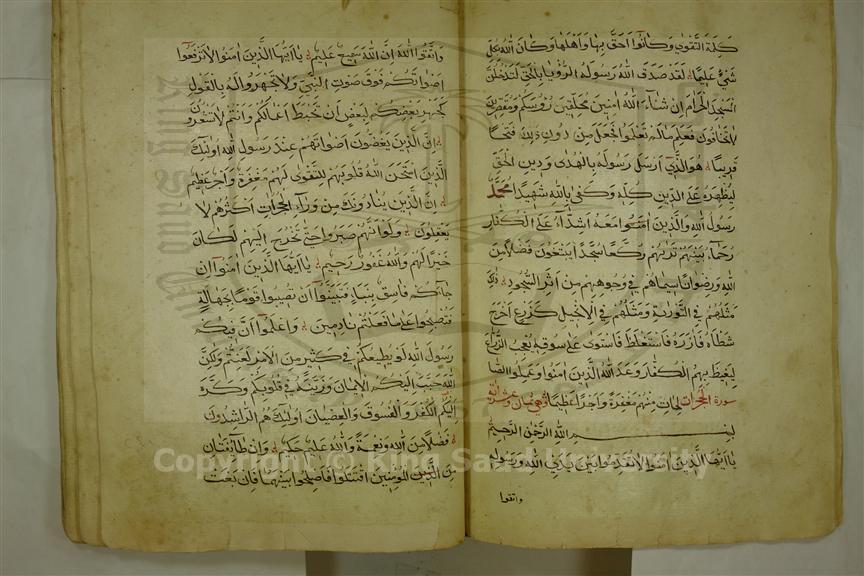 كلمة التقوى وكانوا احق بها واهلها وكان الله بكل
شئ عليما لقد صدق الله رسوله الرؤيا بالحق لتدخلن
المسجد الحرام ان شاء الله امنين محلقين رؤسكم ومقصرين
لا تخافون فعلم ما لم تعلموا فجعل من دون ذلك فتحا
قريبا هو الذي ارسل رسوله بالهدى ودين الحق
ليظهره على الدين كله وكفى بالله شهيدا محمد
رسول الله والذين امنوا معه اشداء على الكفار
رحماء بينهم تراهم ركعا سجدا يبتغون فضلا من
الله ورضوانا سيماهم في وجوههم من اثر السجود ذلك
مثلهم في التورية ومثلهم في الانجيل كزرع اخرج
شطأه فآزره فاستغلظ فاستوى على سوقه يعجب الزراع
ليغيظ بهم الكفار وعد الله الذين امنوا وعملوا الصا
سورة الحجرات لحات منهم مغفرة واجرا عظيما وهي ثمان وعشر اية
بسم الله الرحمن الرحيم
يا ايها الذين امنوا لا تقدموا بين يدي الله ورسوله
واتقوا
واتقوا الله ان الله سميع عليم يا ايها الذين امنوا لا ترفعوا
اصواتكم فوق صوت النبي ولا تجهروا له بالقول
كجهر بعضكم لبعض ان تحبط اعمالكم وانتم لا تشعرون
ان الذين يغضون اصواتهم عند رسول الله اولئك
الذين امتحن الله قلوبهم للتقوى لهم مغفرة واجر عظيم
ان الذين ينادونك من وراء الحجرات اكثرهم لا
يعقلون ولو انهم صبروا حتى تخرج اليهم لكان
خيرا لهم والله غفور رحيم يا ايها الذين امنوا ان
جاءكم فاسق بنباء فتبينوا ان تصيبوا قوما بجهالة
فتصبحوا على ما فعلتم نادمين واعلموا ان فيكم
رسول الله لو يطيعكم في كثير من الامر لعنتم ولكن
الله حبب اليكم الايمان وزينه في قلوبكم وكره
اليكم الكفر والفسوق والعصيان اولئك هم الراشدون
فضلا من الله ونعمة والله عليم حكيم وان طائفتان
من المؤمنين اقتتلوا فاصلحوا بينهما فان بغت
Copyright © King Saud University